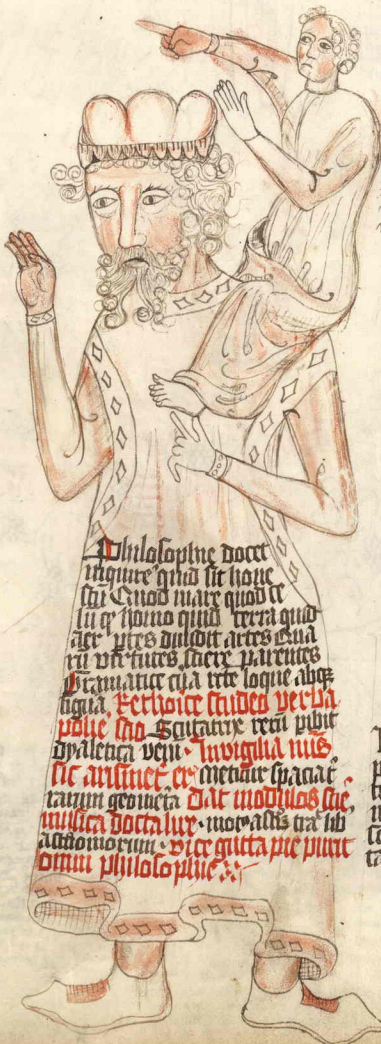 Philosophie docet
inquire quid sit hone
stū Quod mare quod ce
lū q̄ homo quid terra quid
aer ptes diuidit artes Qua
rū virtutes scire parentes
Gramatice cūa rete loque absq̄
figua. Rethorice studeo verba
polie suo Scutatrix recti pībit
dyaletica veni · Invigilia nūīs
sic arismet er metitur spaciāt
rarum geometa Dat modulos sue
musica docta lire · mot astr tra lib
astronomorum · vice gutta pie punt
omni philosophie